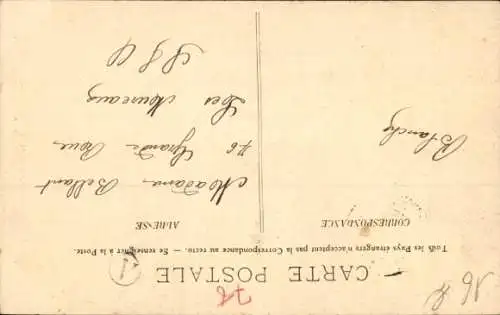 CARTE POSTALE
Tous les Pays étrangers n'acceptent pas la Correspondance au recto. — Se renseigner à la Poste.
CORRESPONDANCE
ADRESSE
Blanche
Madame Bellant
76 Grande Rue
Les Mureaux
S & O
78
16